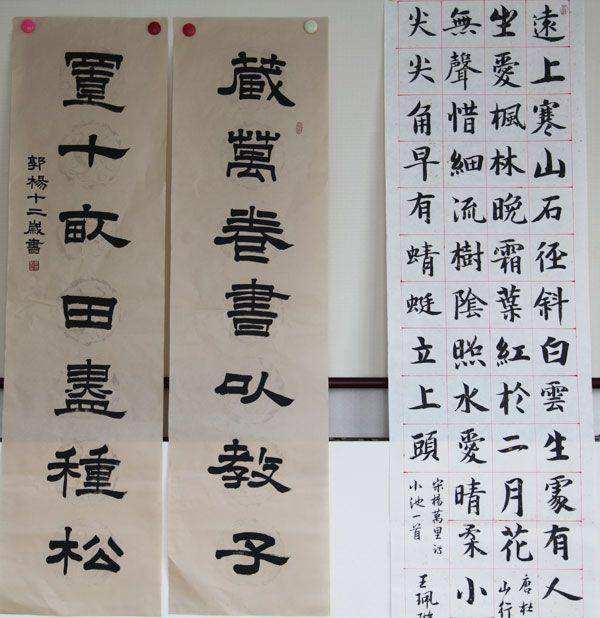 遠上寒山石径斜白雲生處有人
坐愛楓林晚霜葉紅於二月花
唐杜
山行
無聲惜細流樹陰照水愛晴柔小
尖尖角早有蜻蜓立上頭
宋楊萬里詩
小池一首
王珮
藏萬卷書以教子
置十畝田盡種松
郭楊十二歲書